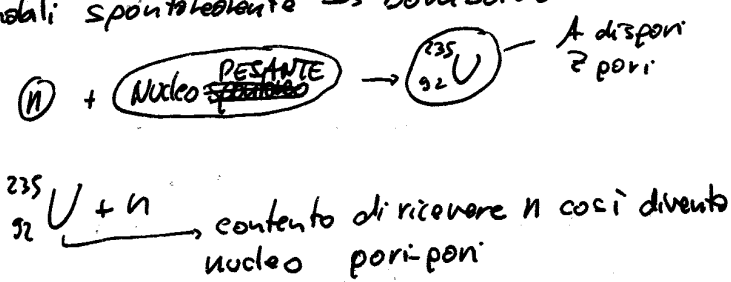 spontaneamente →
n + Nucleo PESANTE → ²³⁵₉₂U — A dispari
Z pari
²³⁵₉₂U + n → contento di ricevere n così diventa
nucleo pari-pari